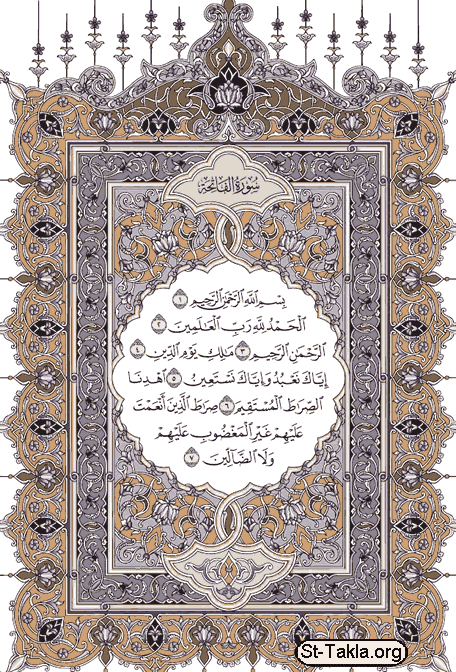 سُورَةُ الفَاتِحَةِ
بِسْمِ ٱللَّهِ ٱلرَّحْمَٰنِ ٱلرَّحِيمِ ١
ٱلْحَمْدُ لِلَّهِ رَبِّ ٱلْعَٰلَمِينَ ٢
ٱلرَّحْمَٰنِ ٱلرَّحِيمِ ٣ مَٰلِكِ يَوْمِ ٱلدِّينِ ٤
إِيَّاكَ نَعْبُدُ وَإِيَّاكَ نَسْتَعِينُ ٥ ٱهْدِنَا
ٱلصِّرَٰطَ ٱلْمُسْتَقِيمَ ٦ صِرَٰطَ ٱلَّذِينَ أَنْعَمْتَ
عَلَيْهِمْ غَيْرِ ٱلْمَغْضُوبِ عَلَيْهِمْ
وَلَا ٱلضَّآلِّينَ ٧
St-Takla.org